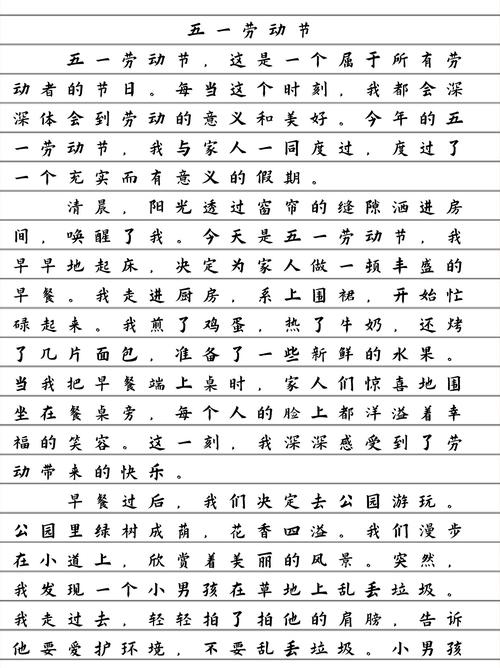 五一劳动节
五一劳动节，这是一个属于所有劳
动者的节日。每当这个时刻，我都会深
深体会到劳动的意义和美好。今年的五
一劳动节，我与家人一同度过，度过了
一个充实而有意义的假期。
清晨，阳光透过窗帘的缝隙洒进房
间，唤醒了我。今天是五一劳动节，我
早早地起床，决定为家人做一顿丰盛的
早餐。我走进厨房，系上围裙，开始忙
碌起来。我煎了鸡蛋，热了牛奶，还烤
了几片面包，准备了一些新鲜的水果。
当我把早餐端上桌时，家人们惊喜地围
坐在餐桌旁，每个人的脸上都洋溢着幸
福的笑容。这一刻，我深深感受到了劳
动带来的快乐。
早餐过后，我们决定去公园游玩。
公园里绿树成荫，花香四溢。我们漫步
在小道上，欣赏着美丽的风景。突然，
我发现一个小男孩在草地上乱丢垃圾。
我走过去，轻轻拍了拍他的肩膀，告诉
他要爱护环境，不要乱丢垃圾。小男孩